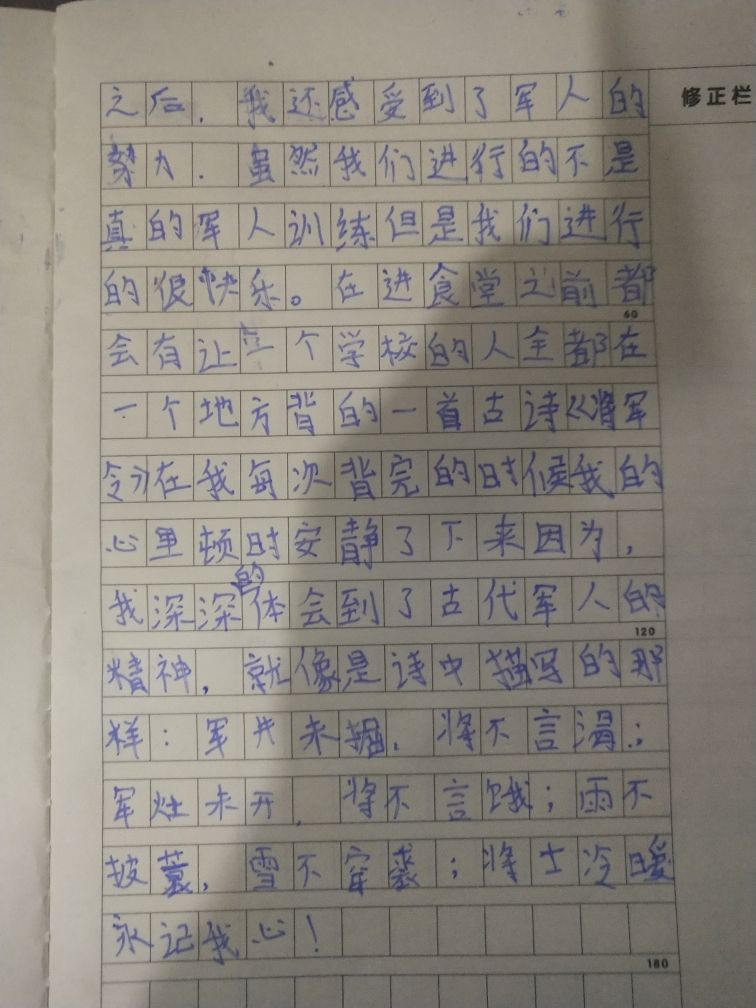 修正栏
之后，我还感受到了军人的
努力．虽然我们进行的不是
真的军人训练但是我们进行
的很快乐。在进食堂之前都
60
会有让一个学校的人全都在
一个地方背的一首古诗《将军
令》在我每次背完的时候我的
心里顿时安静了下来因为，
我深深的体会到了古代军人的
120
精神，就像是诗中描写的那
样：军井未掘，将不言渴；
军灶未开，将不言饿；雨不
披蓑，雪不穿裘；将士冷暖
永记我心！
180